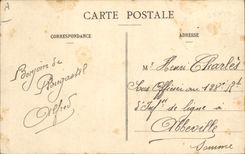 A
CARTE POSTALE
CORRESPONDANCE
ADRESSE
Bonjour de
Plougastel
Alfred
Mr Henri Charles
Sous Officier au 128e Rt
d'Infie de ligne à
Abbeville
Somme